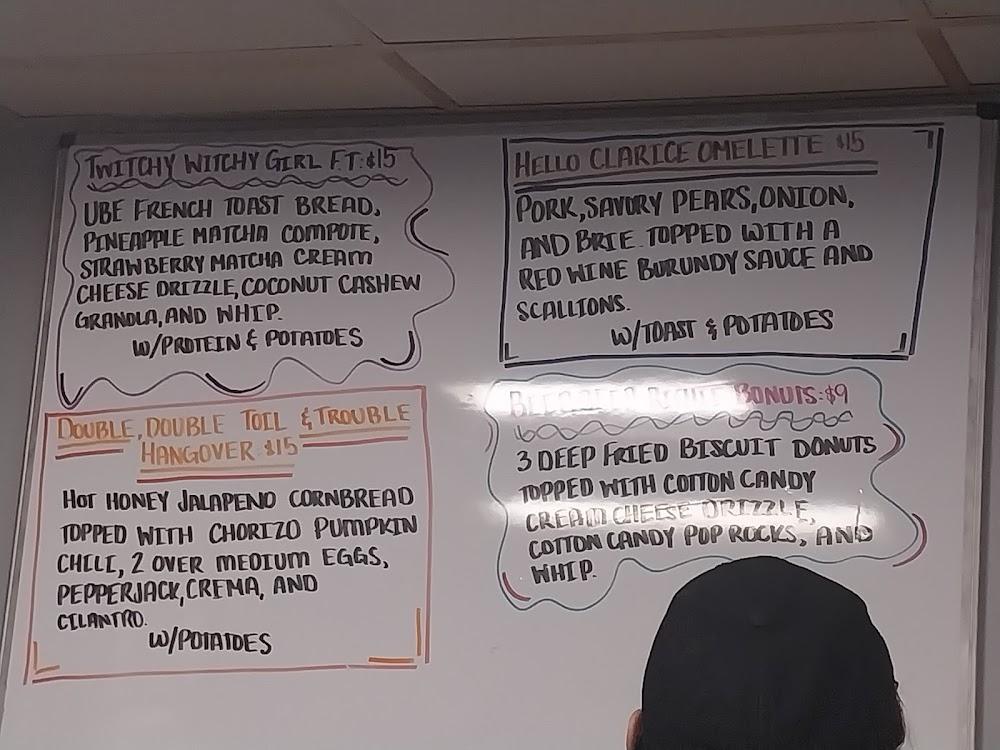 TWITCHY WITCHY GIRL F.T:$15
UBE FRENCH TOAST BREAD,
PINEAPPLE MATCHA COMPOTE,
STRAWBERRY MATCHA CREAM
CHEESE DRIZZLE, COCONUT CASHEW
GRANOLA, AND WHIP.
W/PROTEIN & POTATOES
HELLO CLARICE OMELETTE $15
PORK, SAVORY PEARS, ONION,
AND BRIE. TOPPED WITH A
RED WINE BURUNDY SAUCE AND
SCALLIONS.
W/TOAST & POTATOES
DOUBLE, DOUBLE TOIL & TROUBLE
HANGOVER $15
HOT HONEY JALAPENO CORNBREAD
TOPPED WITH CHORIZO PUMPKIN
CHILI, 2 OVER MEDIUM EGGS,
PEPPERJACK, CREMA, AND
CILANTRO.
W/POTATOES
BONUTS:$9
3 DEEP FRIED BISCUIT DONUTS
TOPPED WITH COTTON CANDY
CREAM CHEESE DRIZZLE,
COTTON CANDY POP ROCKS, AND
WHIP.